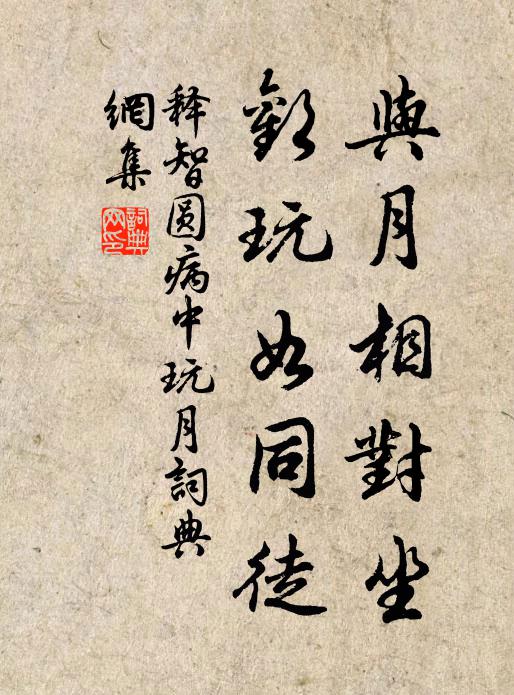 與月相對坐
歡玩如同徒
释智圆病中玩月詞典
網集
詞典
网印